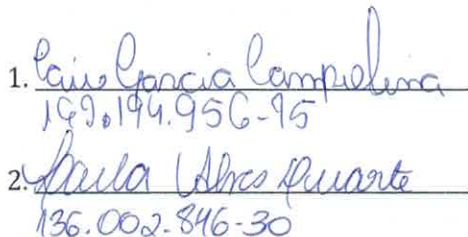 1. Caio Garcia Campolina
149.194.956-95
2. Paula Alves Duarte
136.002.846-30